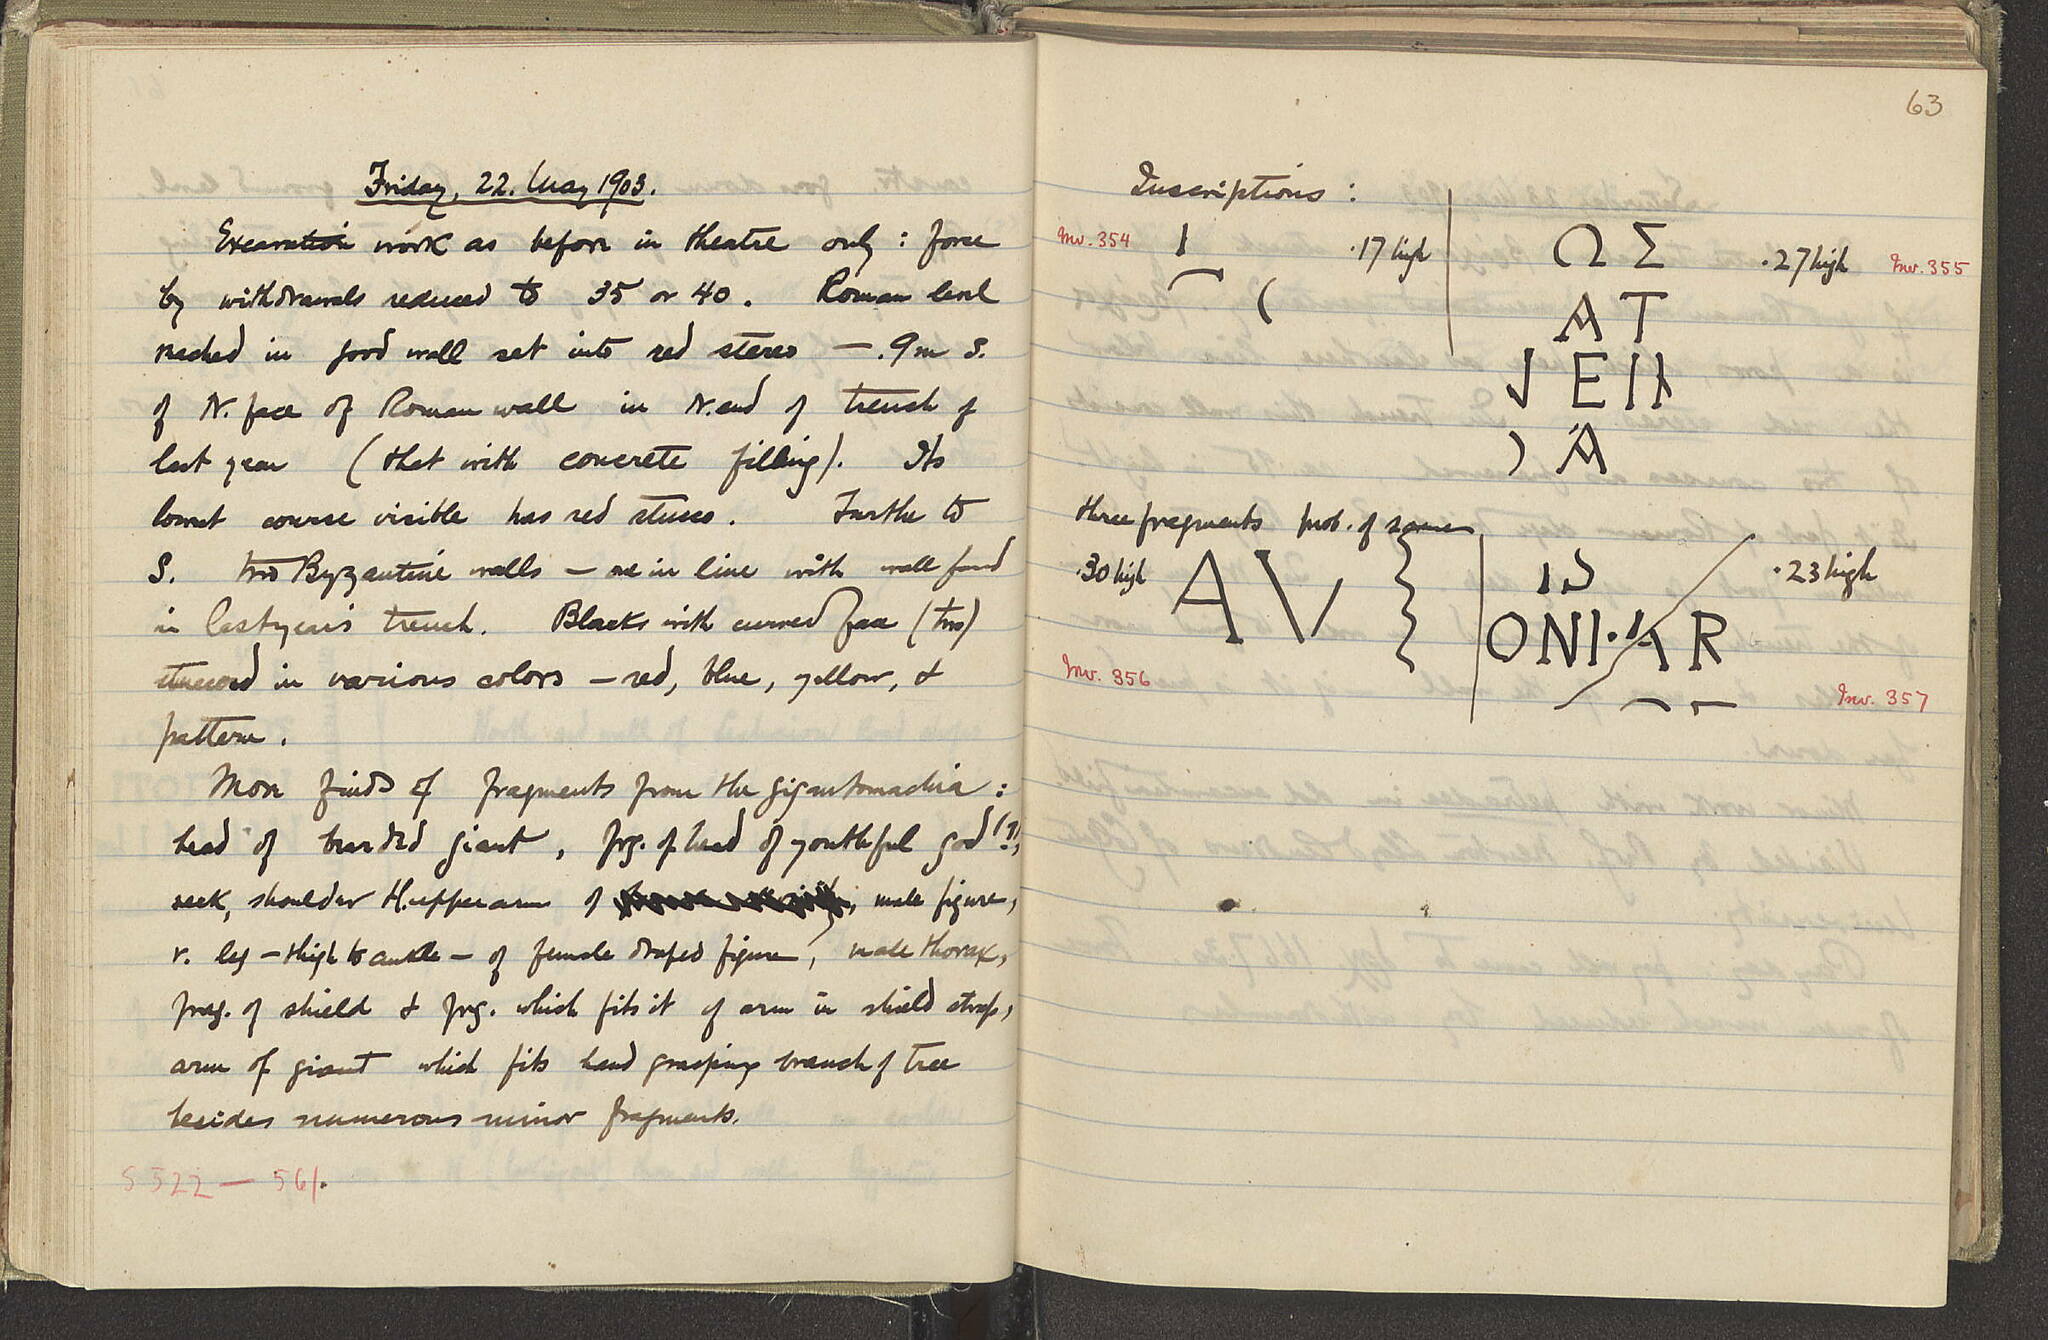 Friday, 22. May 1903.
Excavation work as before in theatre only : force
by withdrawals reduced to 35 or 40. Roman level
reached in good wall set into red stereo — .9m S.
of N. face of Roman wall in N. end of trench of
last year (that with concrete filling). Its
lowest course visible has red stucco. Further to
S. two Byzantine walls — one in line with wall found
in last year's trench. Blocks with curved face (two)
stuccoed in various colors — red, blue, yellow, &
pattern.
More finds of fragments from the gigantomachia :
head of bearded giant, frg. of head of youthful god (?),
neck, shoulder & upper arm of male figure,
r. leg — thigh to ankle — of female draped figure, male thorax,
frag. of shield & frg. which fits it of arm in shield strap,
arm of giant which fits hand grasping branch of tree
besides numerous minor fragments.
S 522 — 561.
63
Inscriptions :
Inv. 354 Ι .17 high
ΩΣ .27 high Inv. 355
ΑΤ
ΕΙ
Α
three fragments prob. of same
.30 high AV
Inv. 356
.23 high
ONI AR
Inv. 357